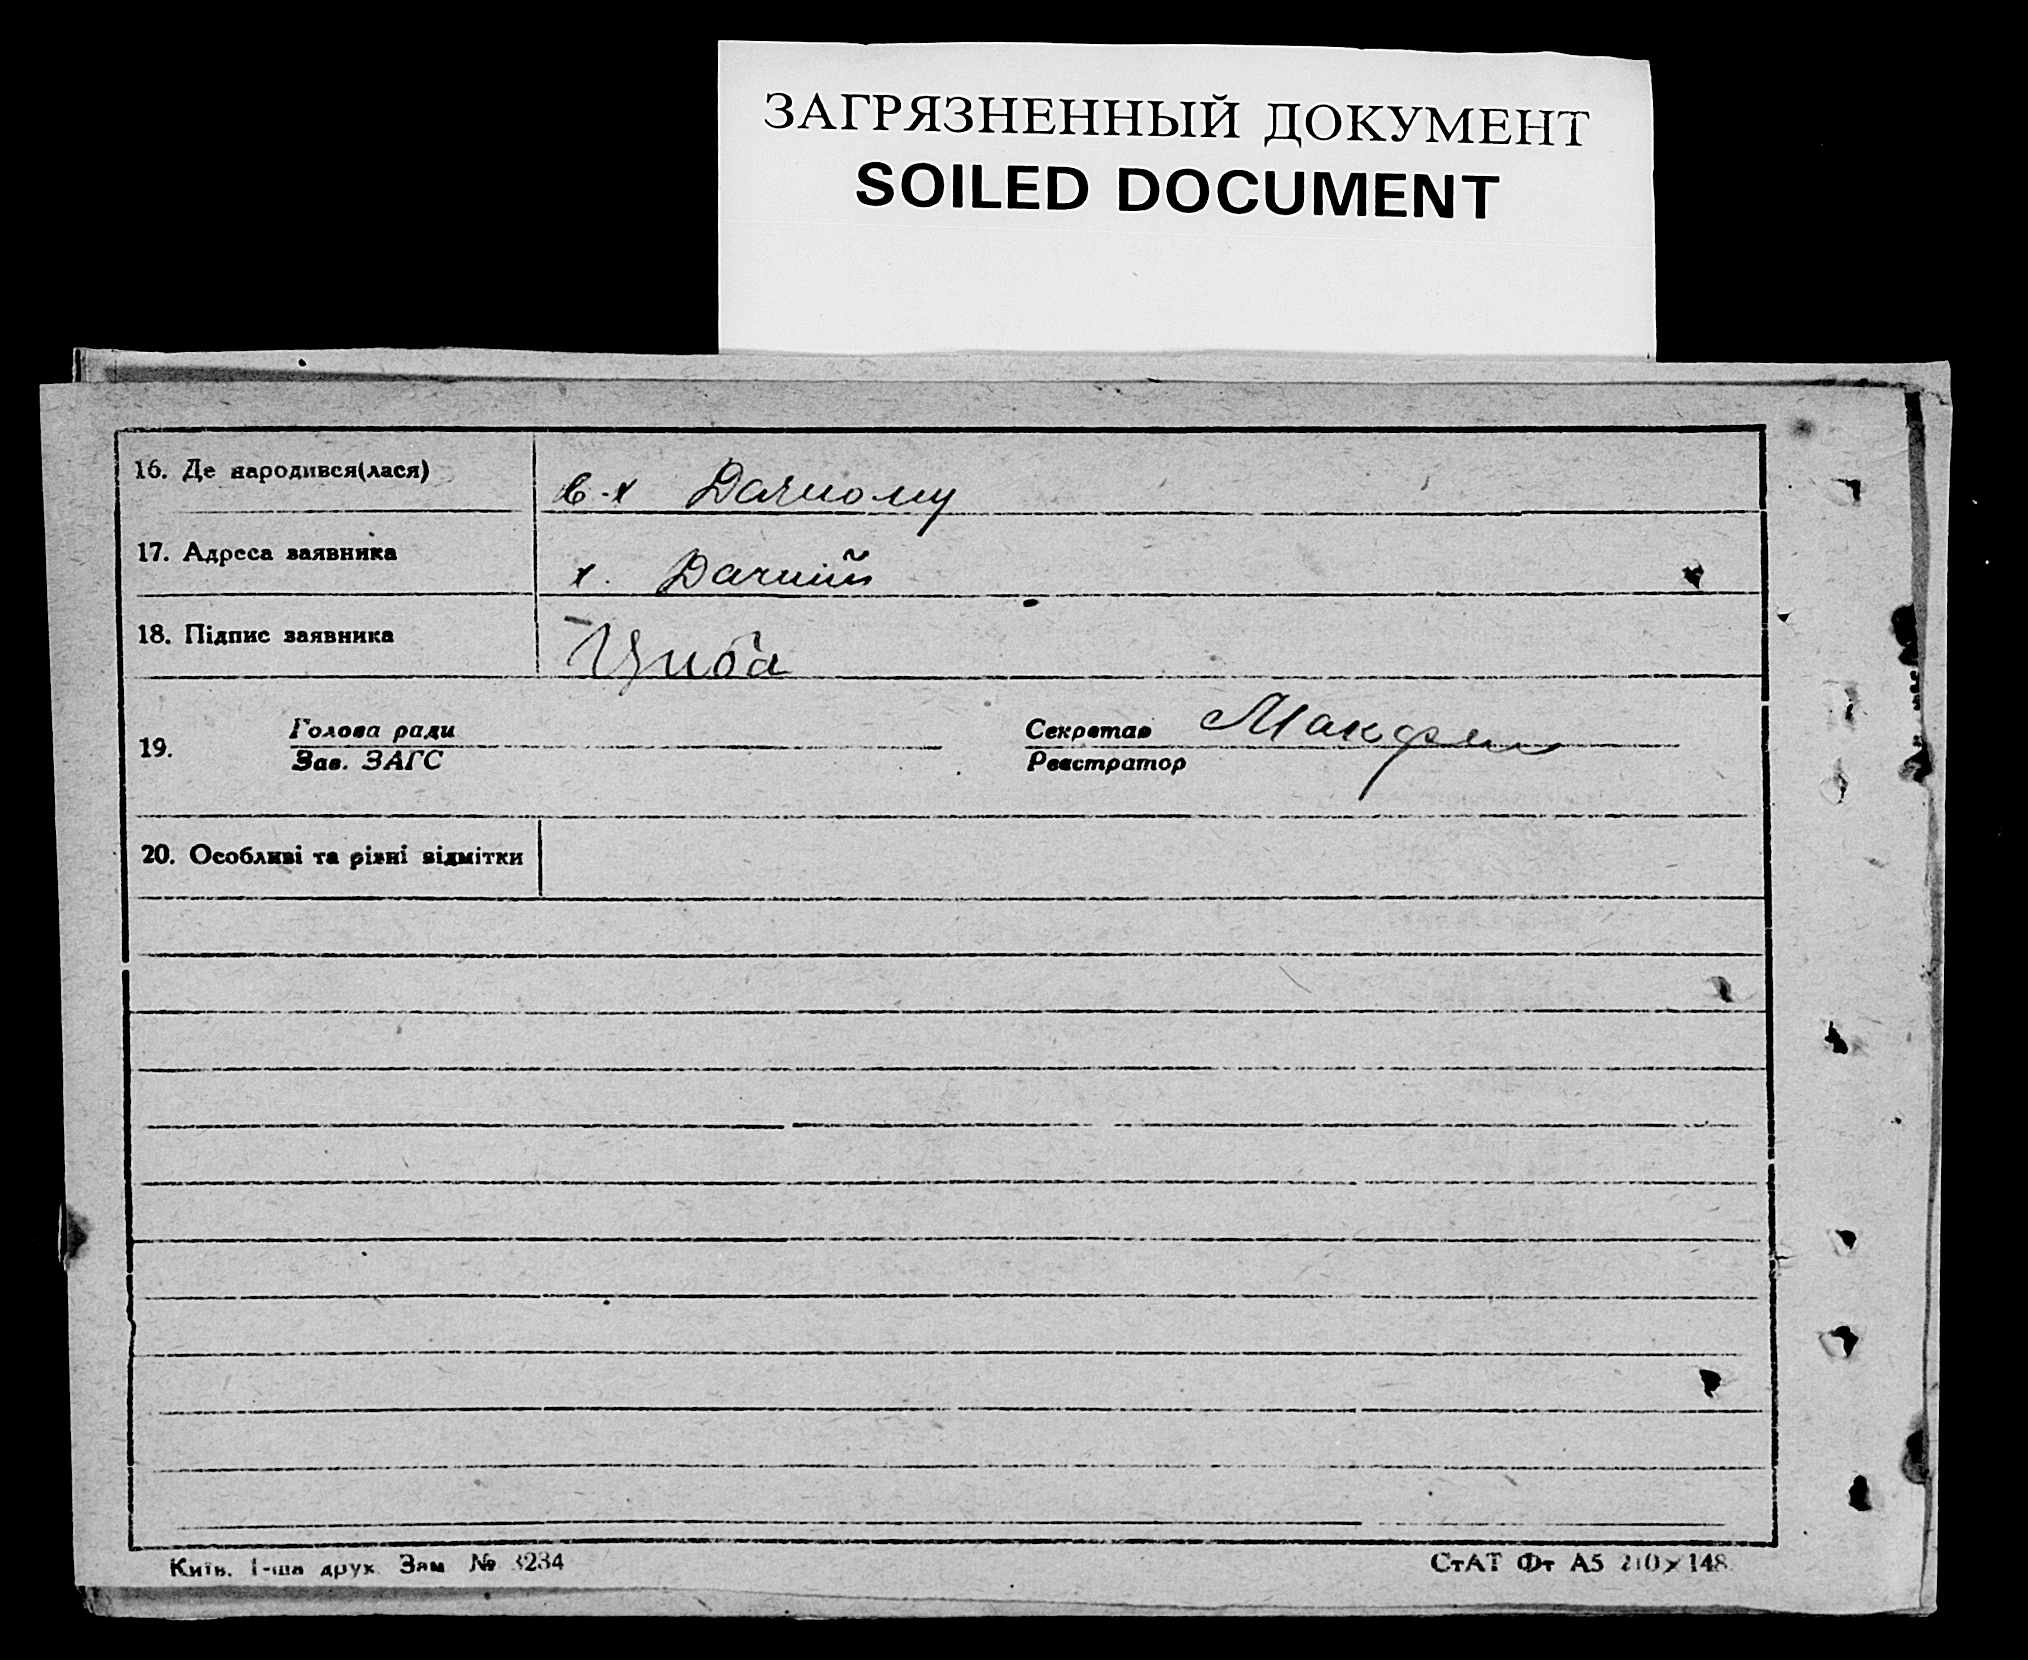 ЗАГРЯЗНЕННЫЙ ДОКУМЕНТ
SOILED DOCUMENT
16. Де народився(лася) в-х Дачному
17. Адреса заявника х. Дачний
18. Підпис заявника Циба
19. Голова ради Секретар
Зав. ЗАГС Реєстратор
20. Особливі та різні відмітки
Київ. 1-ша друк. Зам № 3234 СтАТ Фт А5 210×148